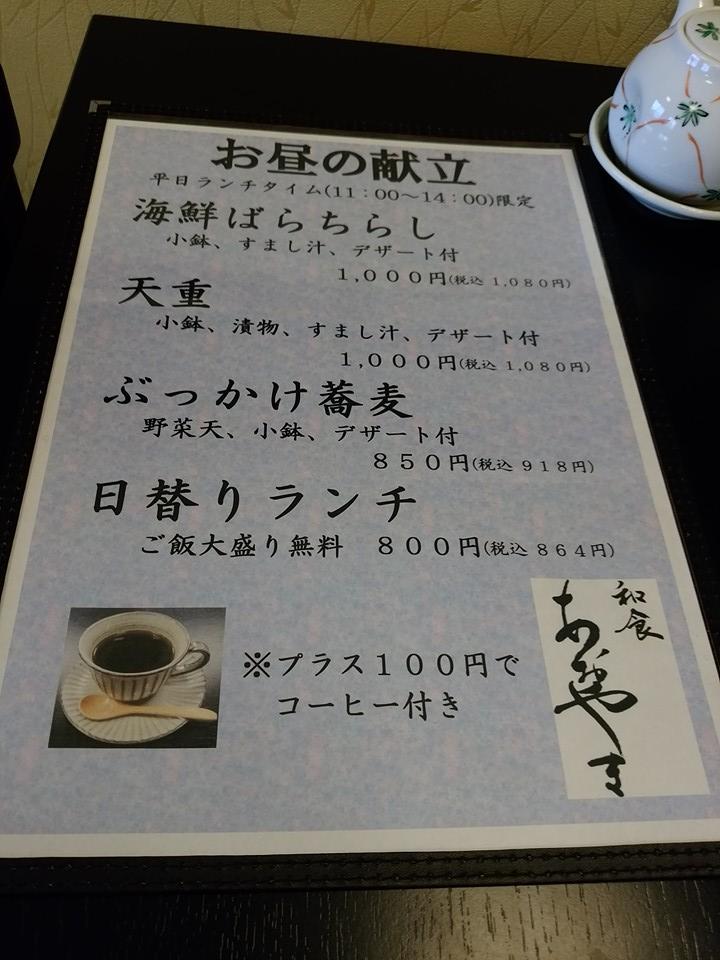 お昼の献立
平日ランチタイム(11：00～14：00)限定
海鮮ばらちらし
小鉢、すまし汁、デザート付
１,０００円(税込 1,０８０円)
天重
小鉢、漬物、すまし汁、デザート付
１,０００円(税込 1,０８０円)
ぶっかけ蕎麦
野菜天、小鉢、デザート付
８５０円(税込 ９１８円)
日替りランチ
ご飯大盛り無料　８００円(税込 ８６４円)
※プラス１００円で
コーヒー付き
和食
あおやま